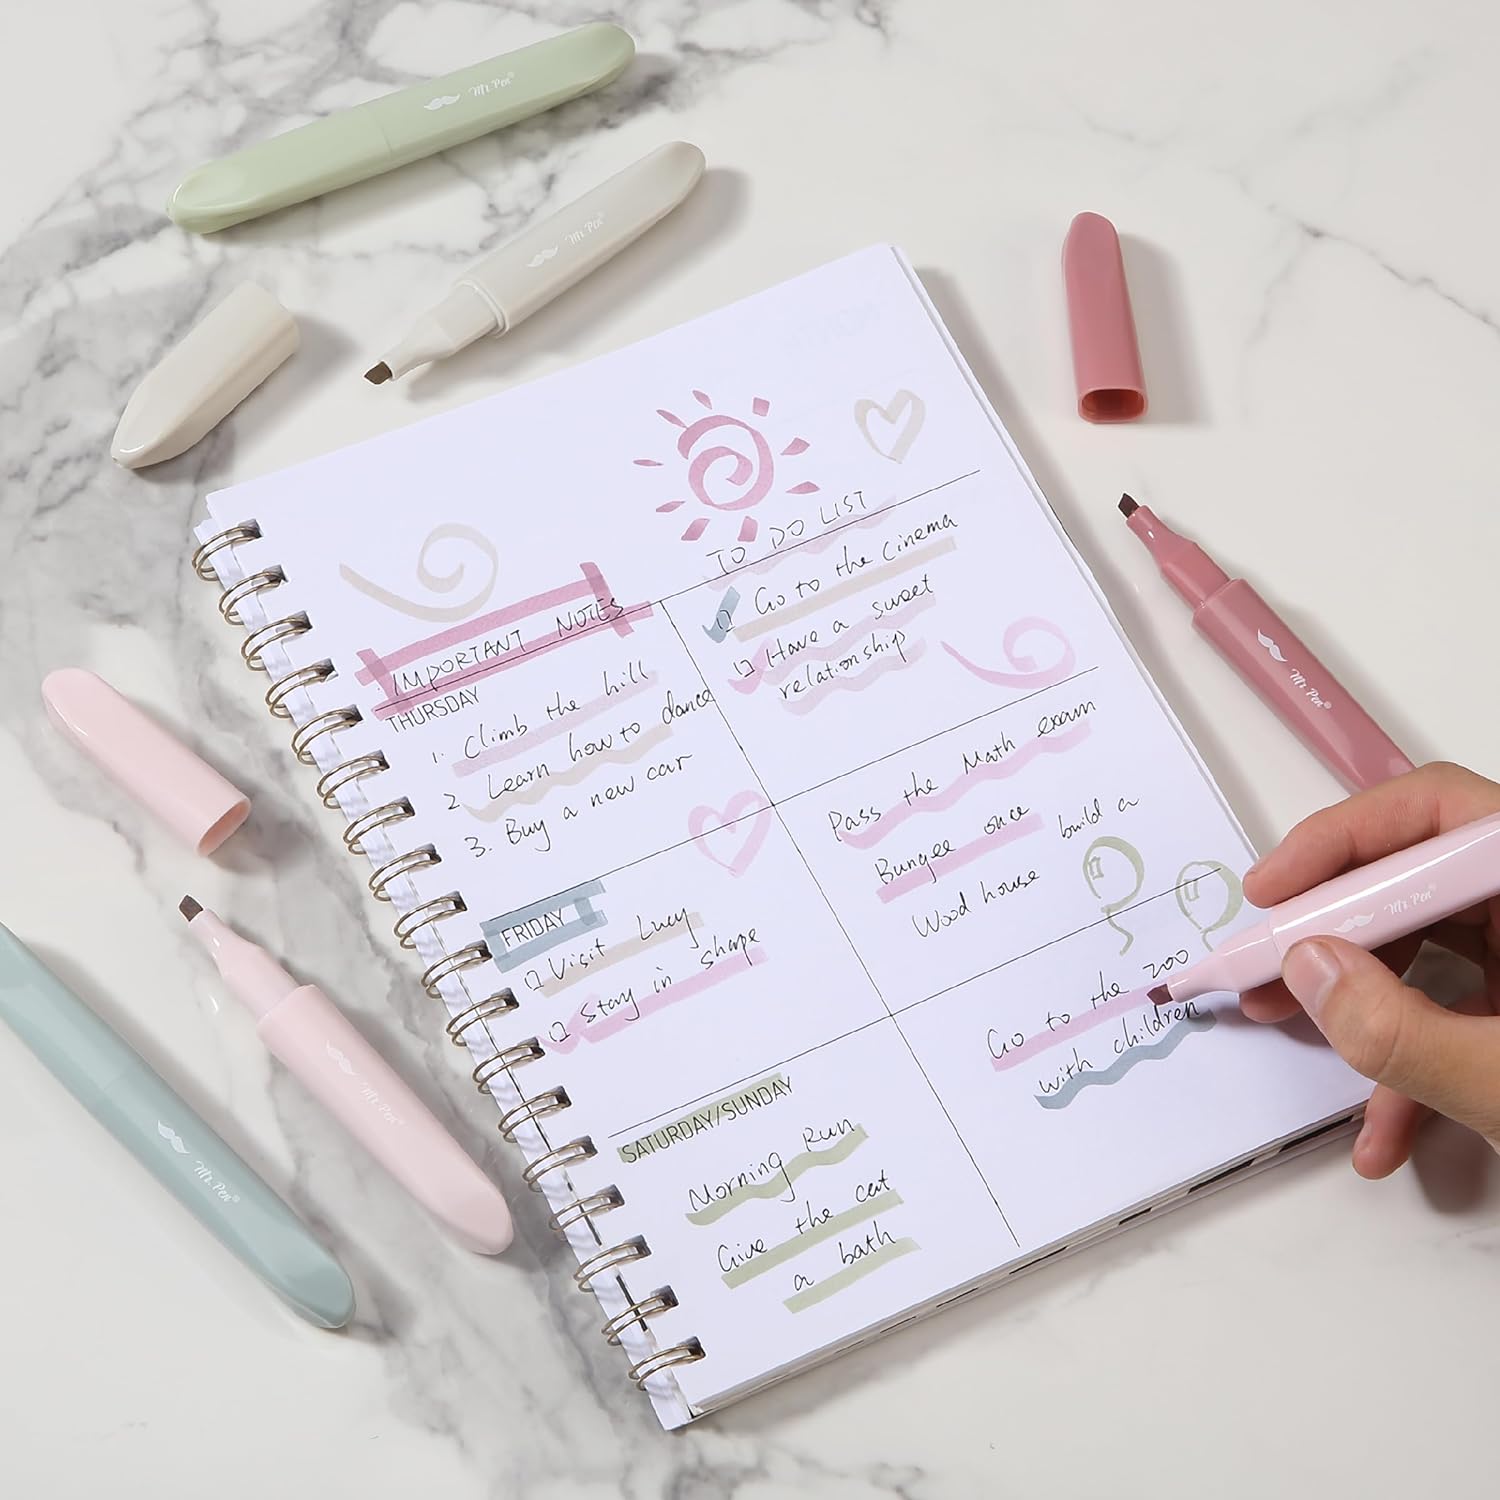 Mr. Pen®
Mr. Pen®
IMPORTANT NOTES
THURSDAY
1. Climb the hill
2 Learn how to dance
3. Buy a new car
FRIDAY
Visit Lucy
Stay in shape
SATURDAY/SUNDAY
Morning Run
Give the cat
a bath
TO DO LIST
Go to the cinema
Have a sweet
relationship
Pass the Math exam
Bungee once
build a
Wood house
Go to the zoo
with children
Mr. Pen®
Mr. Pen®
Mr. Pen®
Mr. Pen®